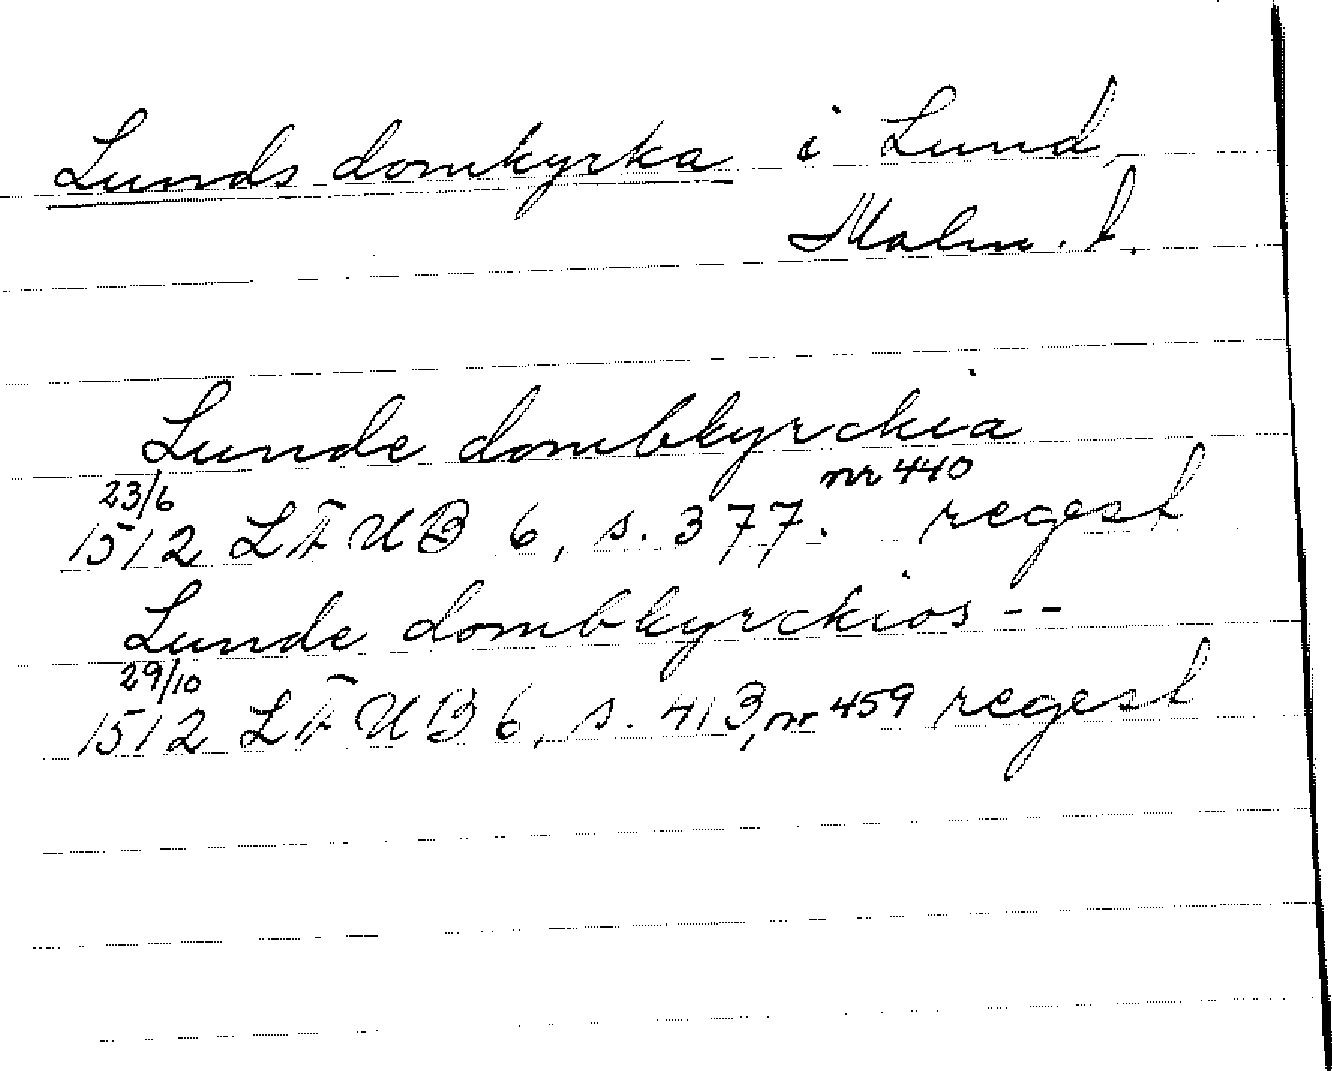 Lunds domkyrka i Lund
Malm. l.
Lunde dombkyrckia
23/6 nr 440
1512 LÄUB 6, s. 377. regest
Lunde dombkyrckios --
29/10
1512 LÄUB 6, s. 413, nr 459 regest